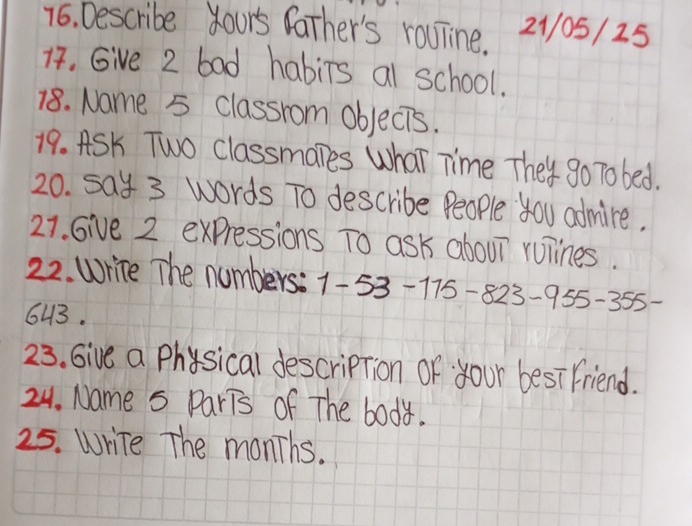 16. Describe your's father's routine. 21/05/25
17. Give 2 bad habits al school.
18. Name 5 classrom objects.
19. Ask Two classmates What Time They go To bed.
20. say 3 words To describe People you admire.
21. Give 2 expressions To ask about rutines.
22. Write The numbers: 1-53-115-823-955-355-
643.
23. Give a Physical description of your best Friend.
24. Name 5 parts of The body.
25. Write The months.